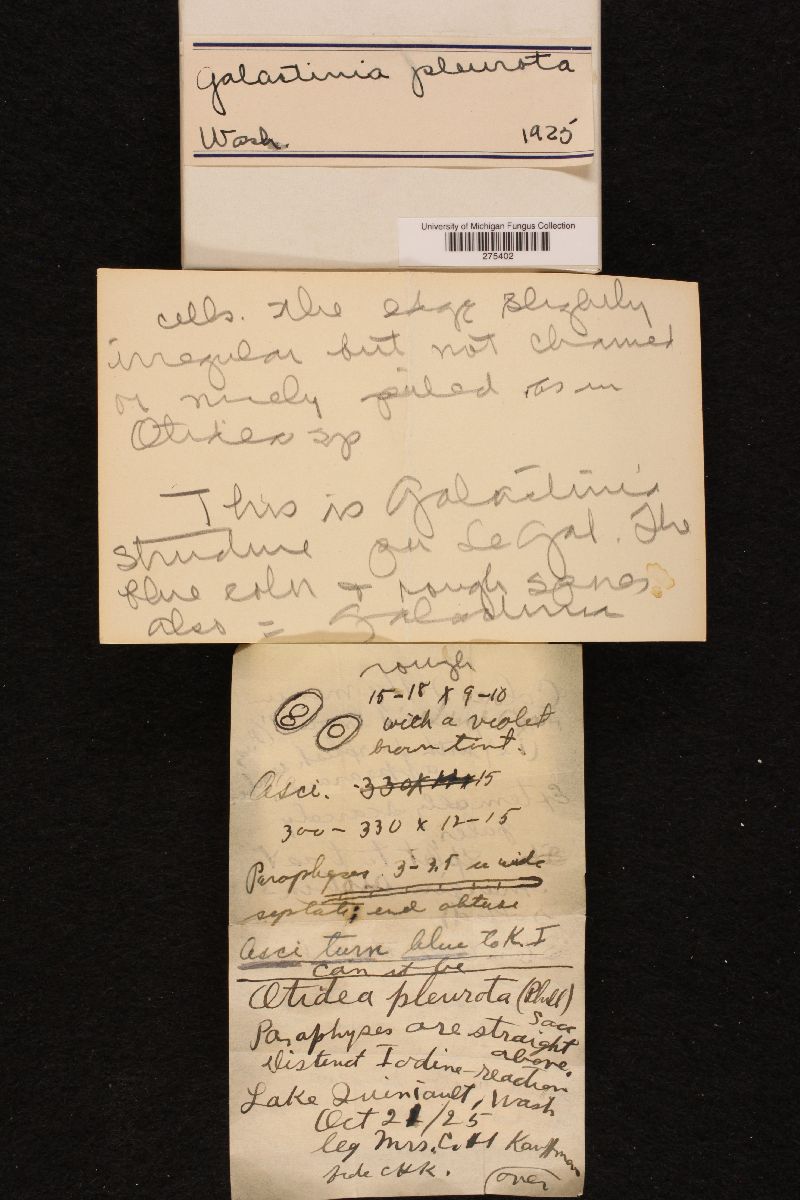 Galactinia pleurota
Wash. 1925
University of Michigan Fungus Collection
275402
cells. The edge slightly
irregular but not
or nicely as in
Otidea sp
This is Galactinia
structure per Le Gal. The
blue color + rough spores
also = Galactinia
rough
15-18 x 9-10
with a violet
brown tint.
Asci. 330x 15
300-330 x 12-15
Paraphyses. 3-3.5 u wide
septate; end obtuse
Asci turn blue to K.I
can it be
Otidea pleurota (Phill)
Sacc
Paraphyses are straight
above.
Distinct Iodine-reaction
Lake Quiniault, Wash
Oct 21/25
leg Mrs. C.H Kauffman
fide CHK.
(over